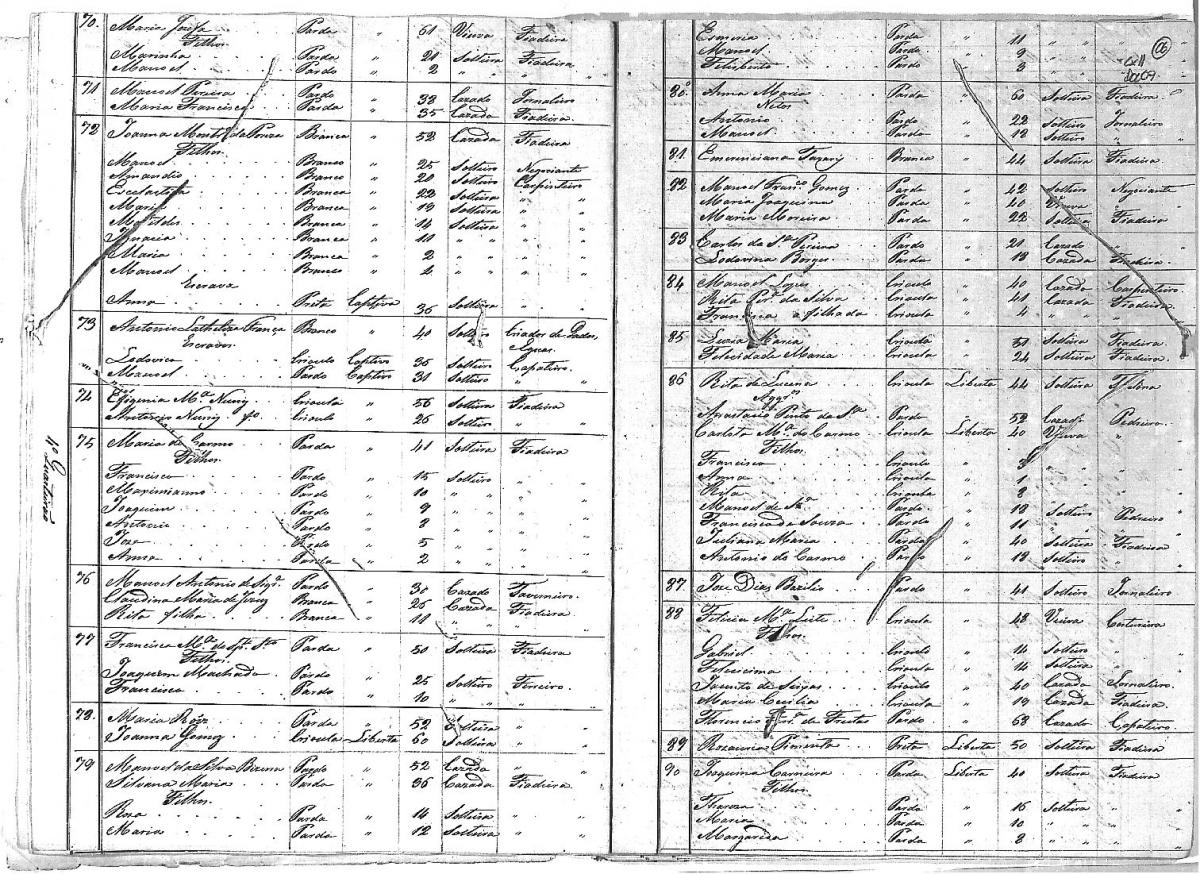 70. Maria Josefa Parda " 61 Viuva Fiadeira
Filhos
Marinha Parda " 21 Solteira Fiadeira
Manoel Pardo " 2 " "
71 Manoel Pereira Pardo " 38 Cazado Jornaleiro
Maria Francisca Parda " 35 Cazada Fiadeira
72 Joanna Branca " 52 Cazada Fiadeira
Filhos
Manoel Branco " 25 Solteiro Negociante
Amandio Branco " 20 Solteiro Carpinteiro
Escolastica Branca " 22 Solteira "
Maria Branca " 19 Solteira "
Matildes Branca " 14 Solteira "
Ignacia Branca " 10 " "
Maria Branca " 2 " "
Manoel Branco " 1 " "
Escrava
Anna Preta Captiva 36 Solteira "
73 Antonio França Branco " 40 Solteiro Criador de Gados
Escravos Egoas
Lodovico Crioulo Captivo 36 Solteiro Capateiro
Manoel Pardo Captivo 31 Solteiro "
74 Efigenia Mª Nunes Crioula " 56 Solteira Fiadeira
Antonio Nunes fº Crioulo " 26 Solteiro "
75 Maria do Carmo Parda " 41 Solteira Fiadeira
Filhos
Francisco Pardo " 15 Solteiro "
Maximianno Pardo " 10 " "
Joaquim Pardo " 9 " "
Antonio Pardo " 8 " "
Joze Pardo " 5 " "
Anna Parda " 2 " "
76 Manoel Antonio de Siqrª Pardo " 30 Cazado Taverneiro
Claudina Maria de Jesus Branca " 26 Cazada Fiadeira
Rita filha Branca " 11 " "
77 Francisca Mª do Spº Stº Parda " 50 Solteira Fiadeira
Filhos
Joaquim Machado Pardo " 25 Solteiro Ferreiro
Francisco Pardo " 10 " "
78 Maria Roza Parda " 52 Solteira "
Joanna Gomes Crioula Liberta 60 Solteira "
79 Manoel da Silva Pardo " 52 Cazado "
Silvana Maria Parda " 36 Cazada Fiadeira
Filhos
Roza Parda " 14 Solteira "
Maria Parda " 12 Solteira "
Esmeria Parda " 11 " "
Manoel Pardo " 9 " "
Feliberto Pardo " 8 " "
80 Anna Maria Parda " 60 Solteira Fiadeira
Netos
Antonio Pardo " 22 Solteiro Jornaleiro
Manoel Pardo " 12 Solteiro "
81 Emerenciana Branca " 44 Solteira Fiadeira
82 Manoel Franco Gomes Pardo " 42 Solteiro Negociante
Maria Joaquina Parda " 40 Viuva "
Maria Moreira Parda " 22 Solteira Fiadeira
83 Carlos da Sª Pereira Pardo " 21 Cazado "
Lodovina Borges Parda " 18 Cazada Fiadeira
84 Manoel Lopes Crioulo " 40 Cazado Carpinteiro
Rita da Silva Crioula " 41 Cazada Fiadeira
Francisca afilhada Crioula " 4 " "
85 Luzia Maria Crioula " 51 Solteira Fiadeira
Felicidade Maria Crioula " 24 Solteira Fiadeira
86 Rita de Lucena Crioula Liberta 44 Solteira
Aggrºs
Anastacio Pinto da Sª Pardo " 52 Cazado Pedreiro
Carlota Mª do Carmo Crioula Liberta 40 Viuva "
Filhos
Francisco Crioulo " 3 " "
Anna Crioula " 1 " "
Rita Crioula " 8 " "
Manoel de Sª Pardo " 18 Solteiro Pedreiro
Francisco de Souza Pardo " 11 " "
Juliana Maria Parda " 40 Solteira Fiadeira
Antonio do Carmo Pardo " 18 Solteiro "
87 Joze Dias Bazilio Pardo " 41 Solteiro Jornaleiro
88 Felicia Mª Leite Crioula " 48 Viuva Costureira
Filhos
Gabriel Crioulo " 14 Solteiro "
Felicissima Crioula " 14 Solteira "
Jacinto de Crioulo " 40 Cazado Jornaleiro
Maria Cecilia Crioula " 19 Cazada Fiadeira
Florencio de Freitas Pardo " 68 Cazado Capateiro
89 Rozauria Pimenta Preta Liberta 50 Solteira Fiadeira
90 Joaquina Carneira Parda Liberta 40 Solteira Fiadeira
Filhos
Thereza Parda " 16 Solteira "
Maria Parda " 10 " "
Margarida Parda " 8 " "